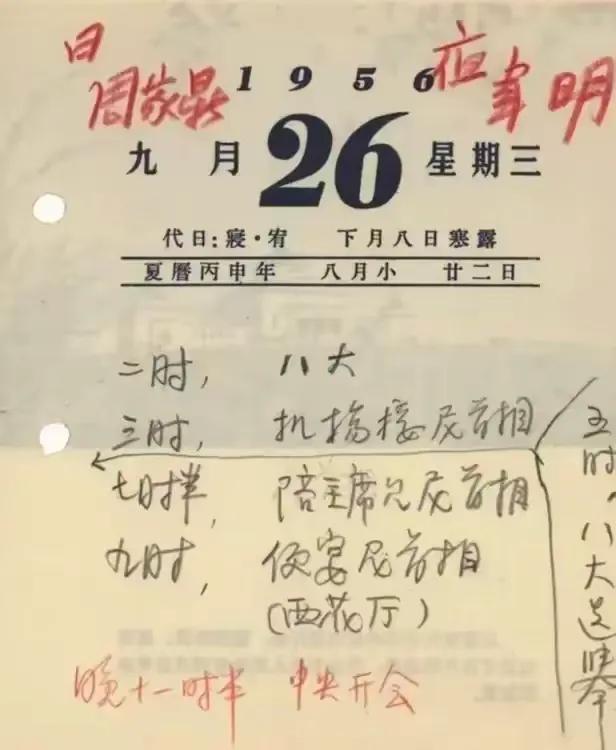 日
周家鼎
夜韦明
1956
九月 26 星期三
代日:寢·宥 下月八日寒露
夏曆丙申年 八月小 廿二日
二时, 八大
三时, 机场接尼首相
五时,八大选举
七时半, 陪主席见尼首相
九时, 便宴尼首相
(西花厅)
晚十一时半 中央开会